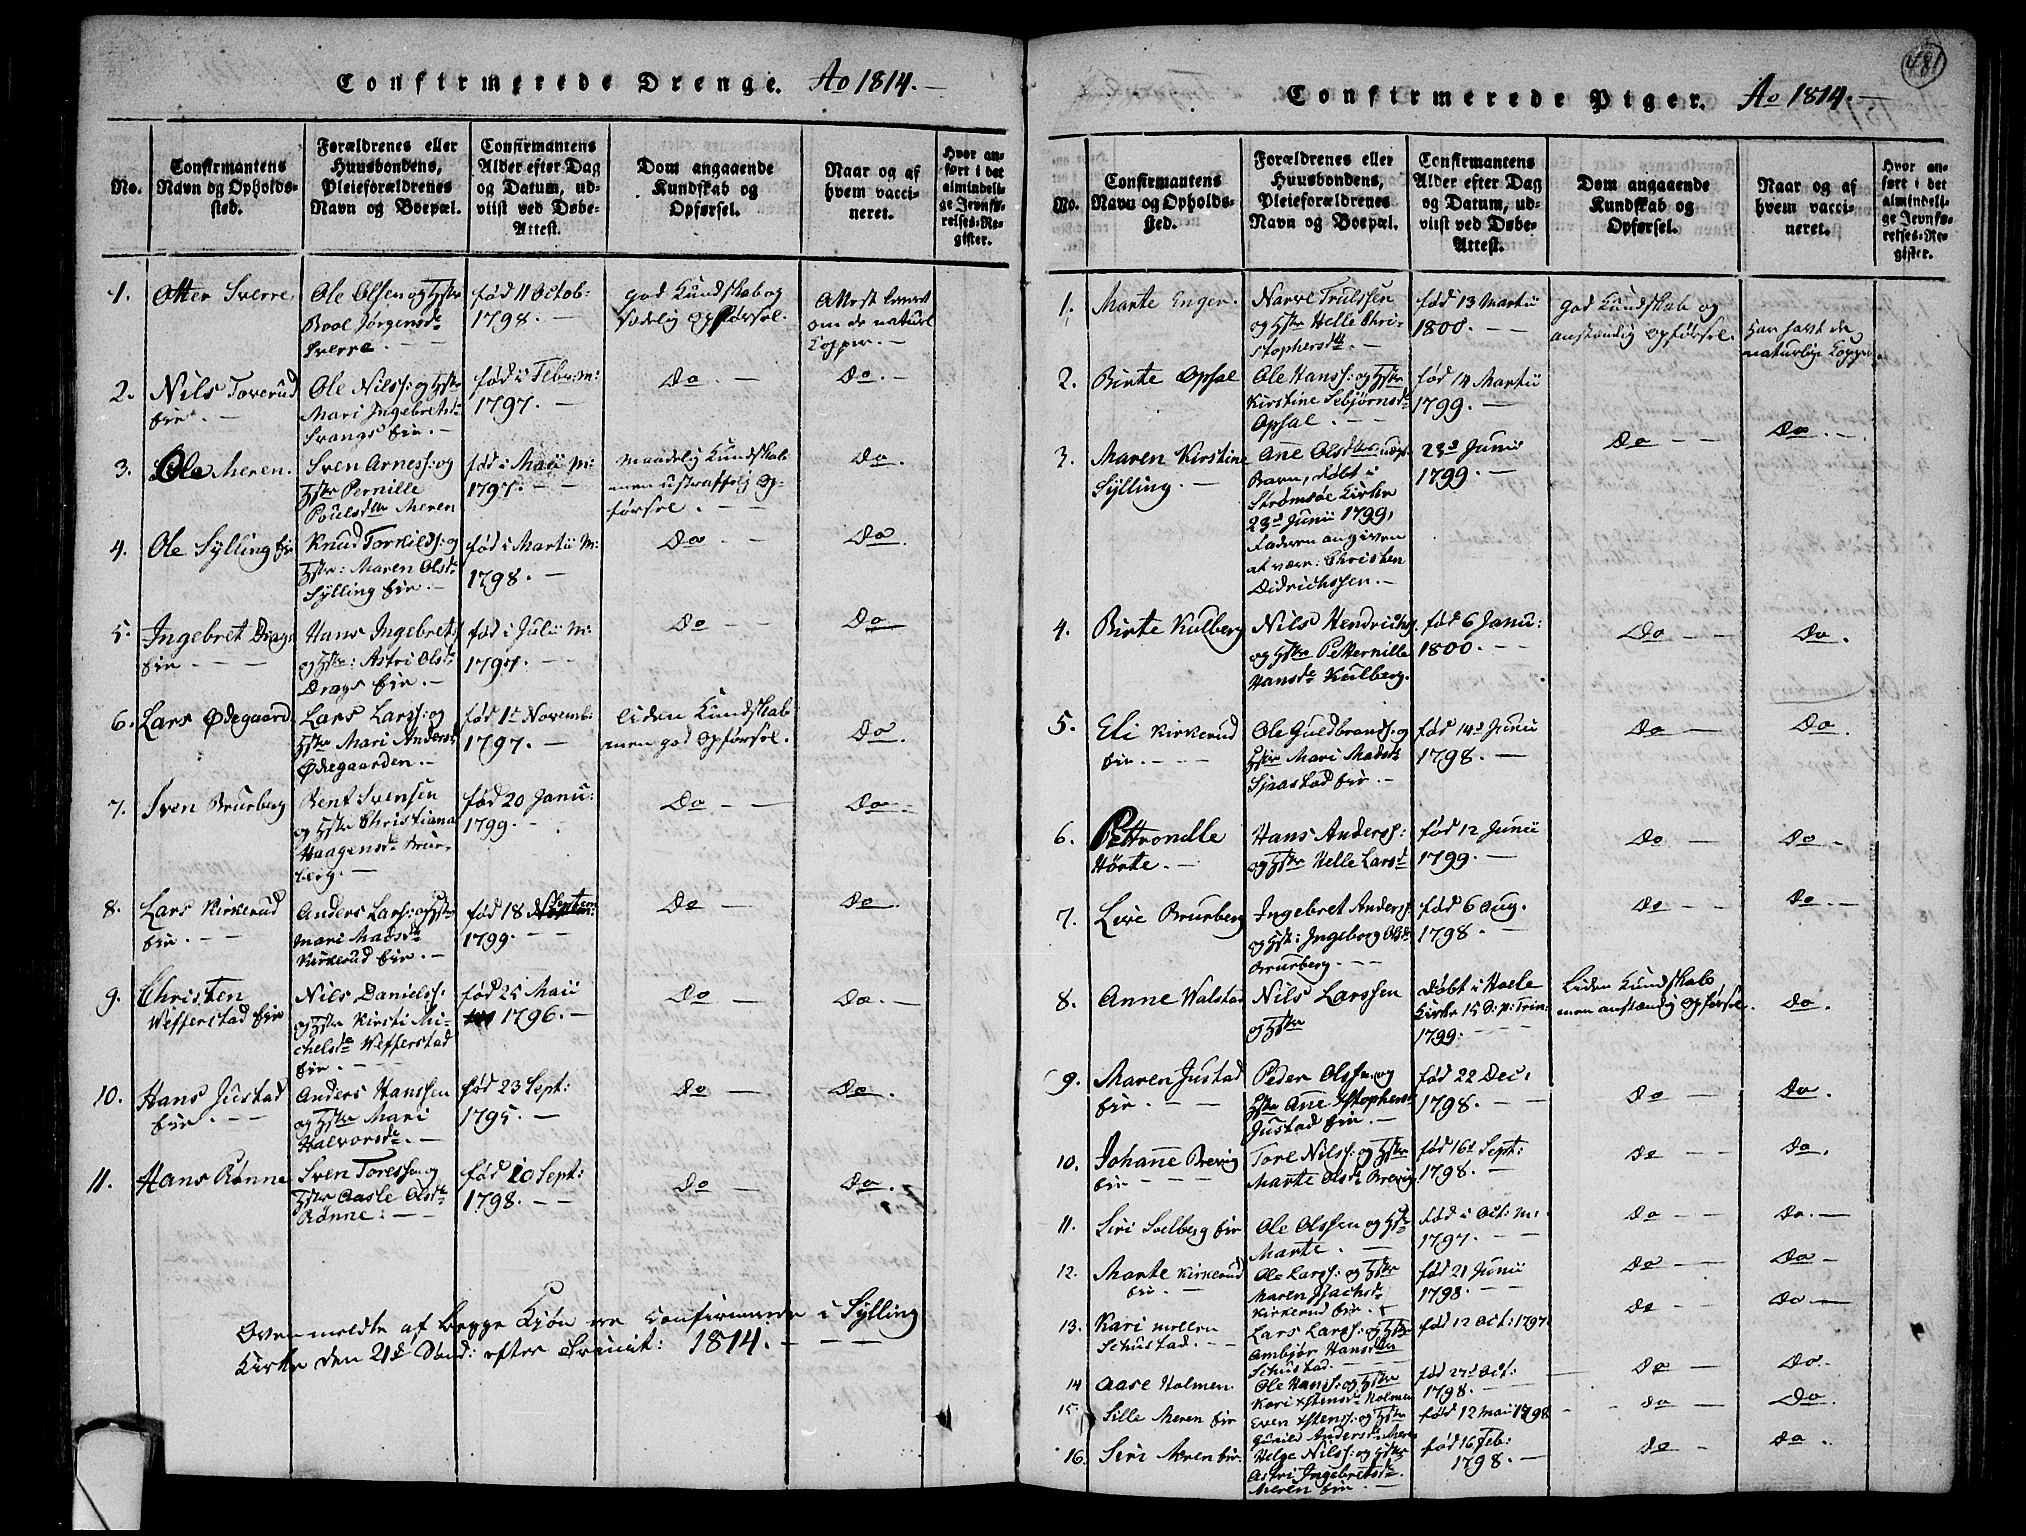 Confirmerede Drenge. Ao 1814.
No.
Confirmantens
Navn og Opholds-
sted.
Forældrenes eller
Huusbondens,
Pleieforældrenes
Navn og Boepæl.
Confirmantens
Alder efter Dag
og Datum, ud-
viist ved Døbe-
Attest.
Dom angaaende
Kundskab og
Opførsel.
Naar og af
hvem vacci-
neret.
Hvor an-
ført i det
almindeli-
ge Jevnfø-
relses-Re-
gister.
1. Otter Sverre.
Ole Olsen og Hstr
Boel Jørgensd
Sverre.
fød 11 Octob:
1798.
god Kundskab og
sædelig Opførsel.
Attest leveret
om de naturl
Kopper.
2. Nils Toverud
Eie.
Ole Nilss: og Hstr
Mari Ingebretsd
Svangs Eie.
fød i Febr: M:
1797.
Do
Do.
3. Ole Meren.
Sven Arness: og
Hstr Pernille
Poulsdtr Meren
fød i Maii M:
1797.
maadelig Kundskab
men ustraffelig Op-
førsel.
Do.
4. Ole Sylling Eie
Knud Torkilds: og
Hstr: Maren Olsd
Sylling Eie.
fød i Martii M:
1798.
Do
Do
5. Ingebret Drags
Eie.
Hans Ingebrets
og Hstr: Astri Olsd
Drags Eie.
fød i Julii M:
1797.
Do
Do
6. Lars Ødegaard
Lars Larss: og
Hstr Mari Andersd
Ødegaarden.
fød 1st Novemb:
1797.
liden Kundskab
men god Opførsel.
Do.
7. Sven Brurberg
Bent Svensen
og Hstr Christiana
Haagensd Brur-
berg.
fød 20 Janu:
1799.
Do
Do
8. Lars Kirkerud
Eie.
Anders Larss: og Hstr
Mari Madsd
Kirkerud Eie.
fød 18
1799.
Do
Do.
9. Christen
Wefferstad Eie
Nils Danielss:
og Hstr Kirsti Mi-
chelsd Wefferstad
Eie.
fød 25 Maii
1796.
Do
Do.
10. Hans Justad
Eie.
Anders Hanssen
og Hstr Mari
Halvorsd.
fød 23 Sept:
1795.
Do
Do.
11. Hans Rønne
Sven Toress: og
Hstr Aasle Olsd
Rønne.
fød 10 Sept:
1798.
Do
Do.
Ovenmeldte af begge Kjøn ere Confirmerede i Sylling
Kirke den 21d Sønd: efter Trinit: 1814.
481
Confirmerede Piger. Ao 1814.
No.
Confirmantens
Navn og Opholds-
sted.
Forældrenes eller
Huusbondens,
Pleieforældrenes
Navn og Boepæl.
Confirmantens
Alder efter Dag
og Datum, ud-
viist ved Døbe-
Attest.
Dom angaaende
Kundskab og
Opførsel.
Naar og af
hvem vacci-
neret.
Hvor an-
ført i det
almindeli-
ge Jevnfø-
relses-Re-
gister.
1. Marte Enger.
Narve Trulssen
og Hstr Helle Chri-
stophersd.
fød 13 Martii
1800.
god Kundskab og
anstændig Opførsel.
Har havt de
naturlige Kopper.
2. Birte Opsal
Ole Hanss: og Hstr
Kirstine Sebjørnsd
Opsal.
fød 14 Martii
1799.
Do
Do.
3. Maren Kirstine
Sylling.
Ane Olsdtrs uægte
Barn, døbt i
Strømsøe Kirke
23d Junii 1799,
Faderen angiven
at være: Christen
Didrichssen.
23d Junii
1799.
4. Birte Kulberg
Nils Hendrichs
og Hstr Petternille
Hansd Kulberg.
fød 6 Janu:
1800.
Do
Do.
5. Eli Kirkerud
Eie.
Ole Guldbrands: og
Hstr Mari Madsd
Sjaastad Eie.
fød 14d Junii
1798.
Do
Do
6. Pettronelle
Hørte.
Hans Anderss:
og Hstr Helle Larsd
fød 12 Junii
1799.
Do
Do.
7. Live Brurberg
Ingebret Anderss
og Hst: Ingeborg Olsd
Brurberg.
fød 6 Aug.
1798.
Do
Do.
8. Anne Walstad
Nils Larssen
og Hstr
døbt i Hole
Kirke 15 S: p: Trin:
1799.
Liden Kundskab
men anstændig Opførsel.
Do.
9. Maren Justad
Eie.
Peder Olss: og
Hstr Ane Xstophersd
Justad Eie.
fød 22 Dec:
1798.
Do
Do.
10. Johanne Brevig
Eie
Tore Nilss: og Hstr
Marte Olsd Brevig
fød 16d Sept:
1798.
Do
Do.
11. Siri Solberg Eie
Ole Olssen og Hstr
Marte.
fød i Oct: M:
1797.
Do
Do.
12. Marte Kirkerud
Eie.
Ole Larss: og Hstr
Maren Isachsd
Kirkerud Eie.
fød 21 Junii
1798.
Do
Do
13. Kari Mellen
Schustad.
Lars Larss: og Hstr
Ambjør Hansdtr
Schustad.
fød 12 Oct: 1797.
Do
Do
14 Aase Holmen.
Ole Hanss: og Hstr
Kari Xstensd Holmen
fød 27d Oct:
1798.
Do
Do.
15. Sille Meren Eie
Even Xstenss: og Hstr
Gunild Andersd: Meren
fød 12 Maii 1798
Do
Do
16. Siri Meren Eie.
Helge Nilss: og Hstr
Astri Ingebretsd
Meren Eie.
fød 16 Feb:
1798.
Do
Do.